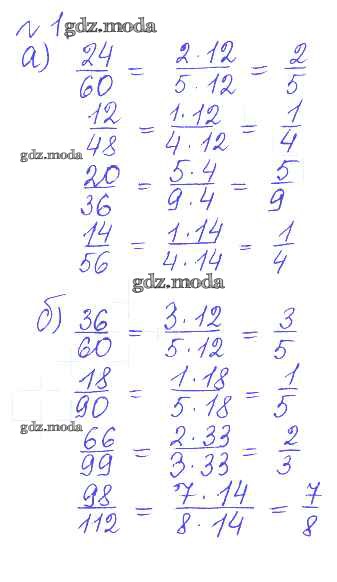 № 1 gdz.moda
а) 24/60 = 2·12/5·12 = 2/5
12/48 = 1·12/4·12 = 1/4
gdz.moda
20/36 = 5·4/9·4 = 5/9
14/56 = 1·14/4·14 = 1/4
gdz.moda
б) 36/60 = 3·12/5·12 = 3/5
18/90 = 1·18/5·18 = 1/5
gdz.moda
66/99 = 2·33/3·33 = 2/3
98/112 = 7·14/8·14 = 7/8